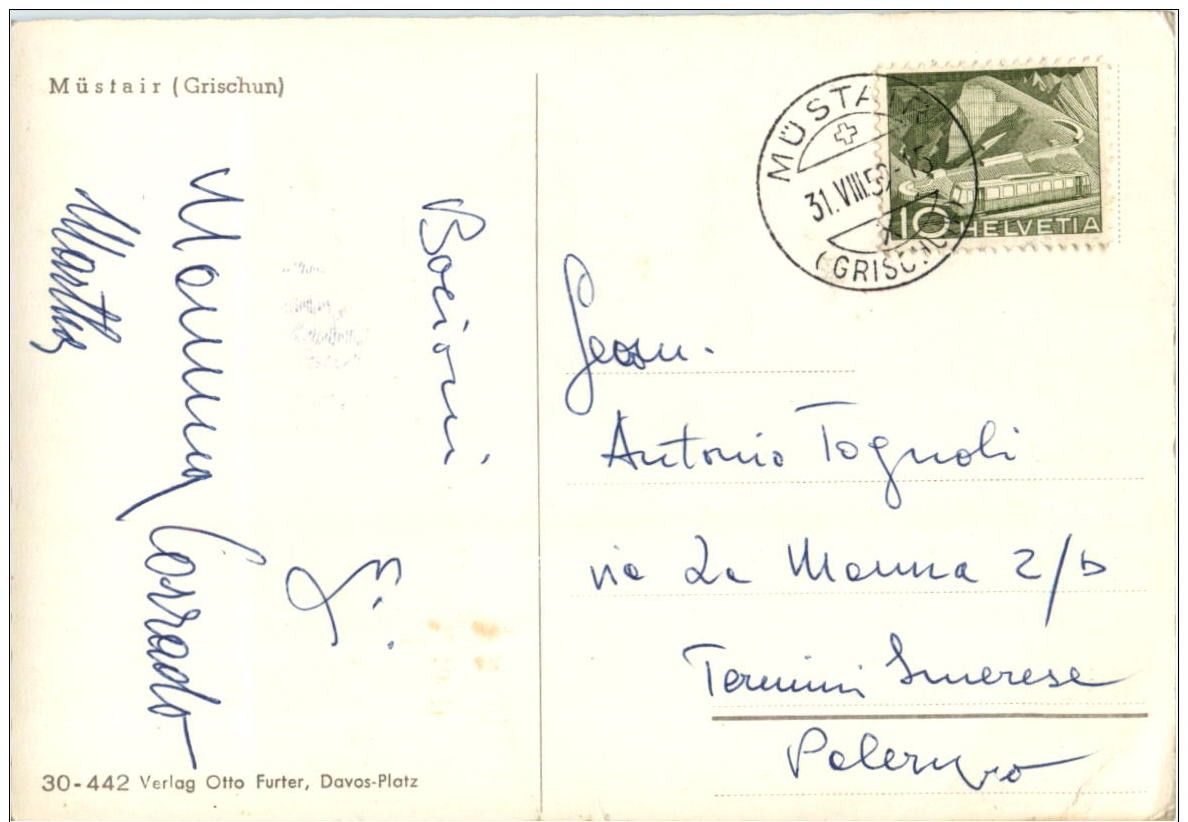 Müstair (Grischun)
MÜSTAIR
31.VIII.5
(GRISCHUN)
10 HELVETIA
Bacioni
Mamma Corrado
Martha
Antonio Tognoli
via La Manna 2/b
Termini Imerese
Palermo
30-442 Verlag Otto Furter, Davos-Platz